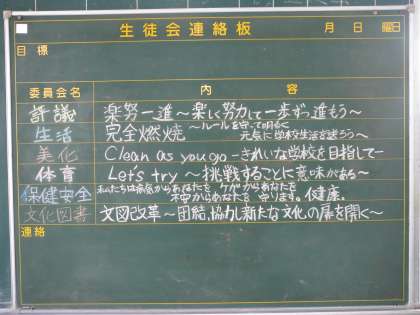 生徒会連絡板 月 日 曜日
目標
委員会名 内容
評議 楽努一進～楽しく努力して一歩ずつ進もう～
生活 完全燃焼～ルールを守って明るく元気に学校生活を送ろう～
美化 Clean as you go -きれいな学校を目指して-
体育 Let's try ～挑戦することに意味がある～
保健安全 私たちは病気からあなたを ケガからあなたを 不安からあなたを 守ります。健康。
文化図書 文図改革～団結、協力し新たな文化の扉を開く～
連絡